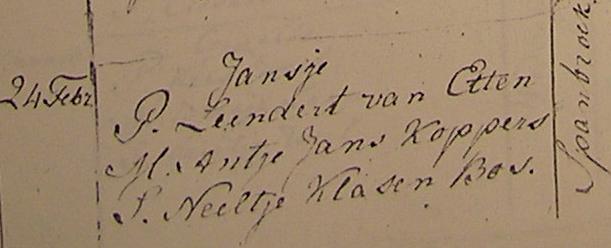 Jansje
24 Febr P. Leendert van Etten
M. Antje Jans Koppers
S. Neeltje Klasen Bos.
Spanbroek